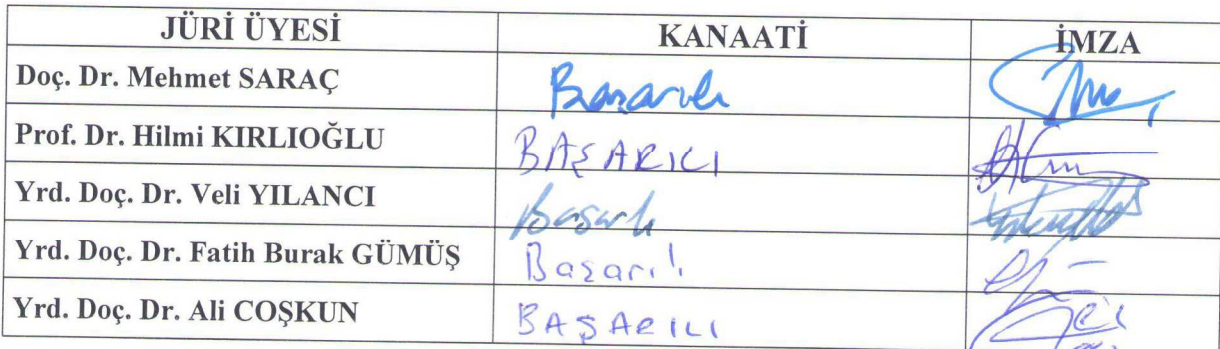 JÜRİ ÜYESİ KANAATİ İMZA
Doç. Dr. Mehmet SARAÇ Başarılı
Prof. Dr. Hilmi KIRLIOĞLU BAŞARILI
Yrd. Doç. Dr. Veli YILANCI Başarılı
Yrd. Doç. Dr. Fatih Burak GÜMÜŞ Başarılı
Yrd. Doç. Dr. Ali COŞKUN BAŞARILI